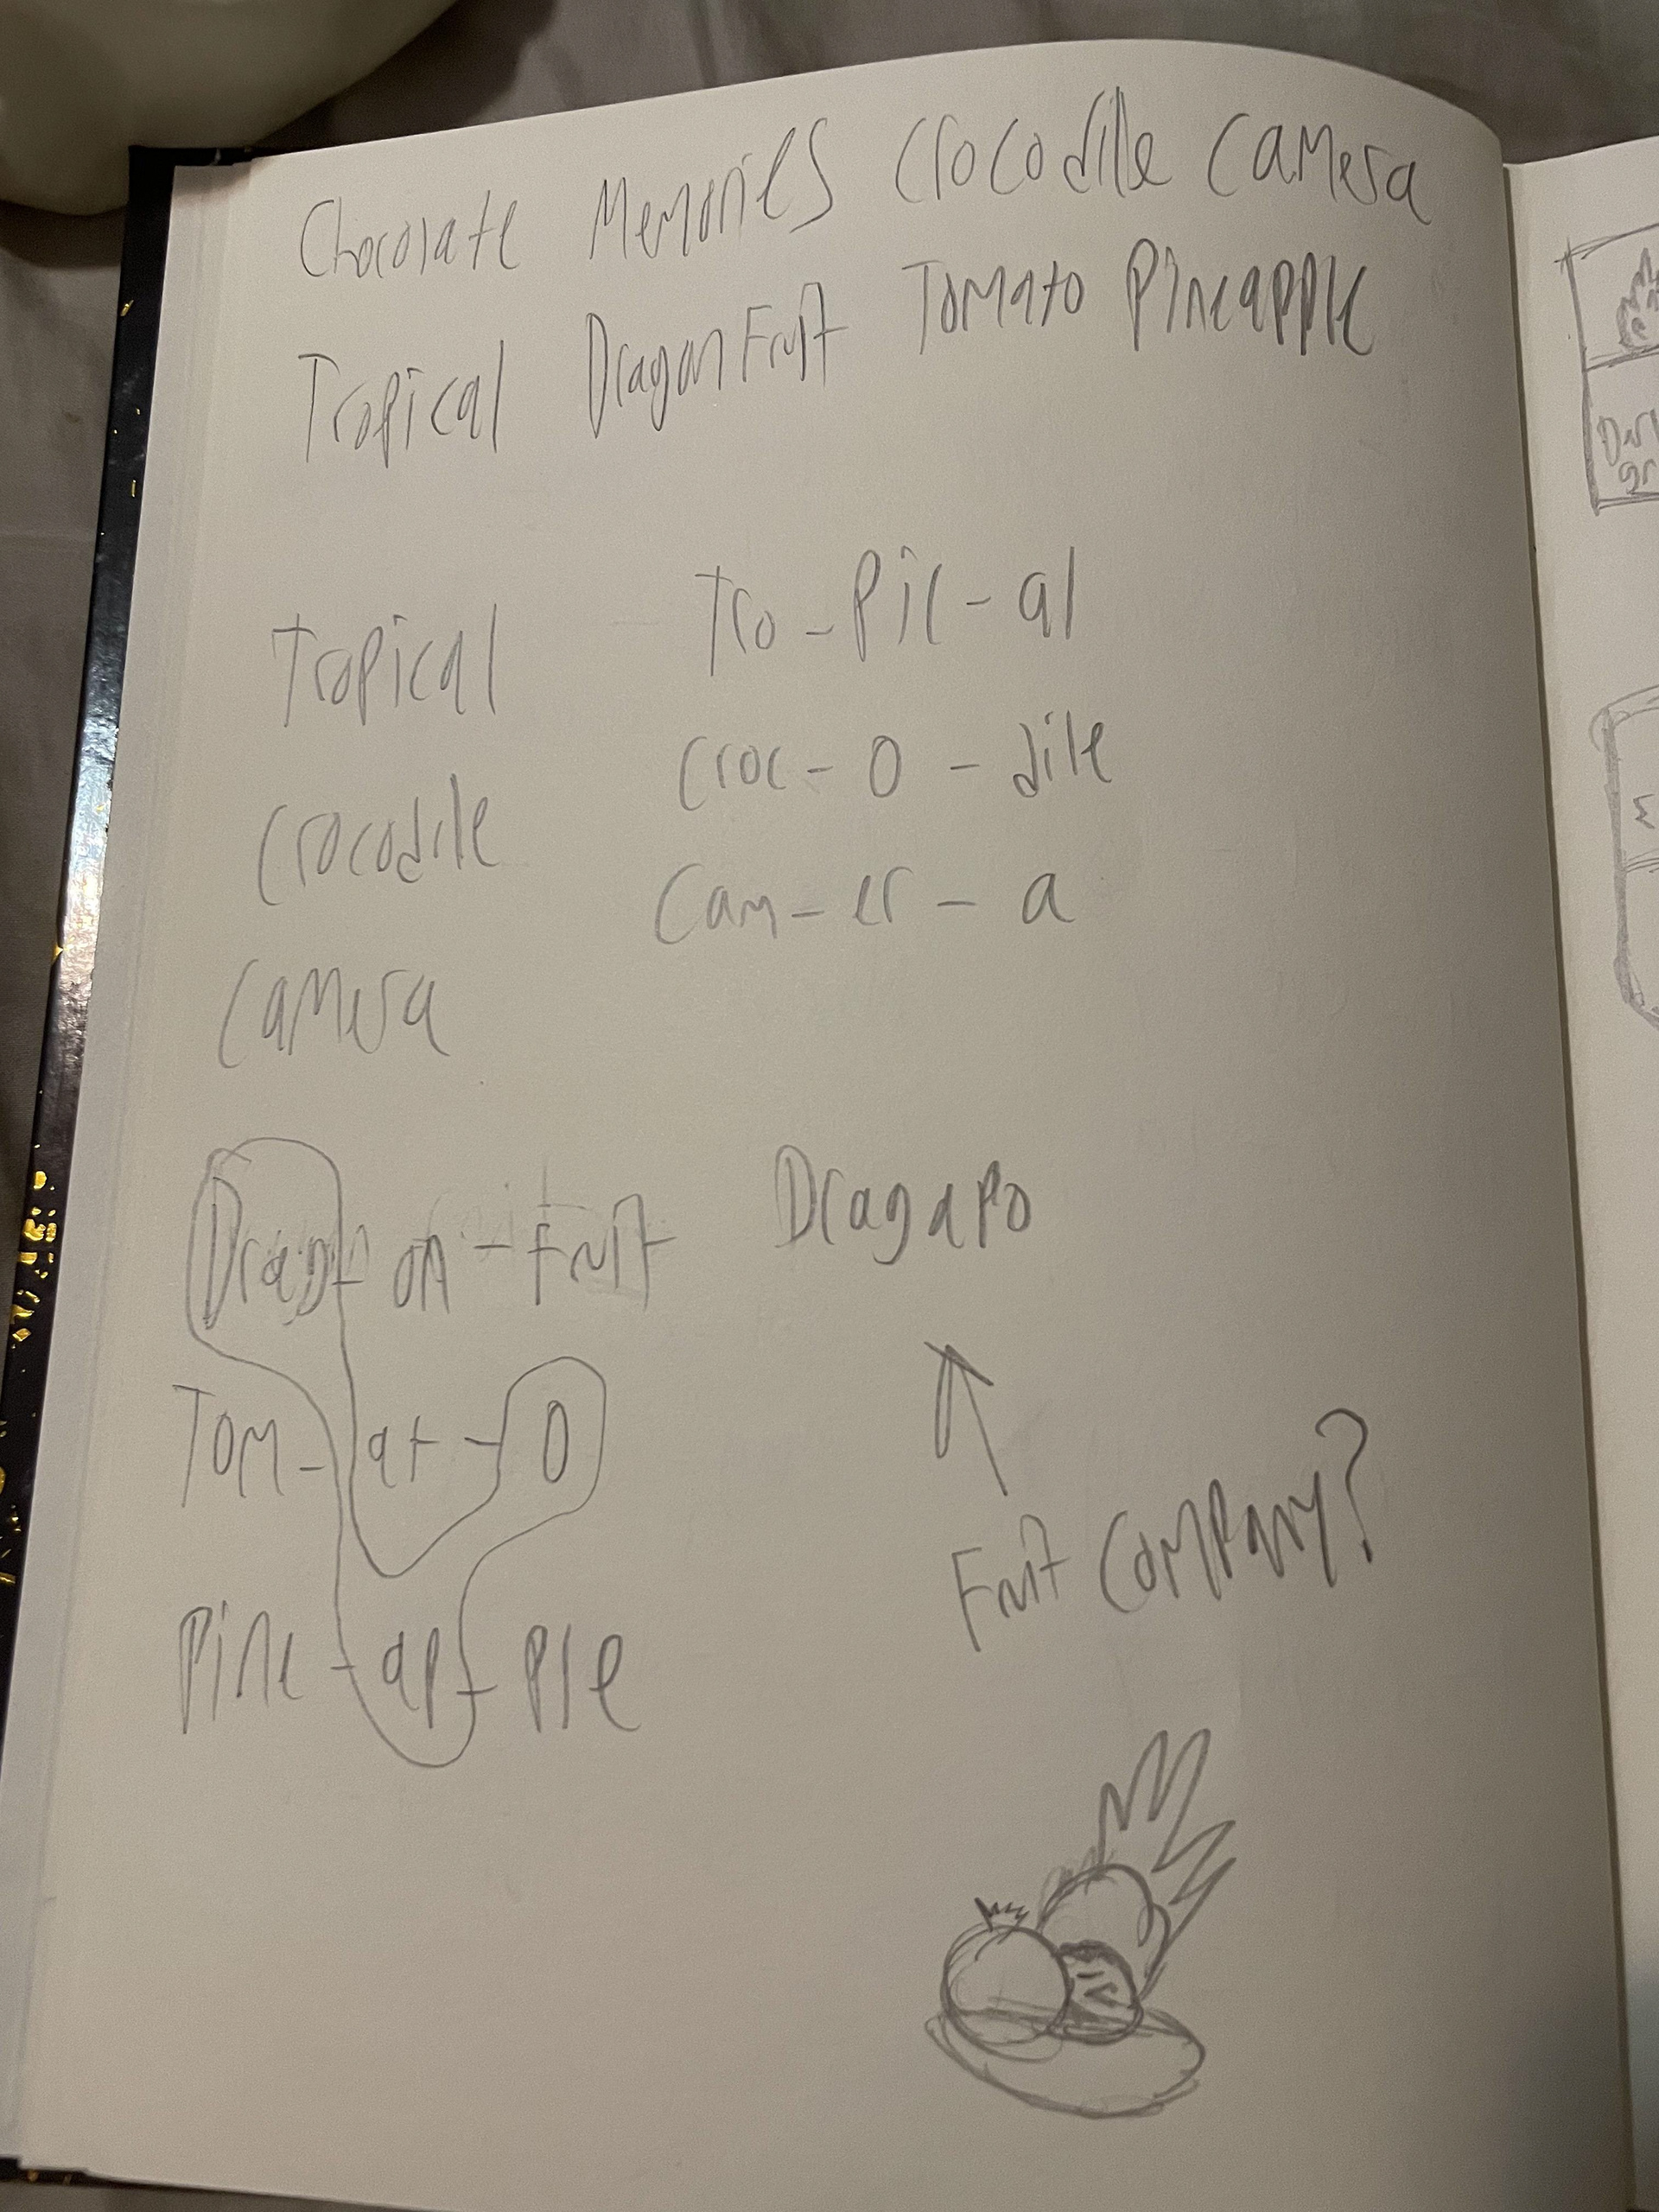 Chocolate Memories Crocodile Camera
Tropical DragonFruit Tomato Pineapple
Tropical Tro - Pic - al
Crocodile Croc - o - dile
Camera Cam - er - a
Drag - on - Fruit Dragapo
Tom - at - o
Pine - ap - ple
Fruit Company?